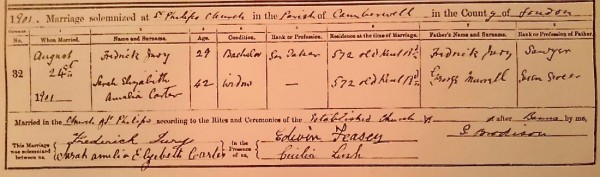 1901. Marriage solemnized at St Philips Church in the Parish of Camberwell in the County of London
Columns:— 1 2 3 4 5 6 7 8
No. When Married. Name and Surname. Age. Condition. Rank or Profession. Residence at the time of Marriage. Father's Name and Surname. Rank or Profession of Father.
32
August Fredrick Jury 29 Bachelor 572 Old Kent Rd Fredrick Jury Sawyer
24th
Sarah Elizabeth 42 Widow — 572 Old Kent Rd George Murrell
1901 Amelia Carter
Married in the Church of St Philips according to the Rites and Ceremonies of the Established Church after Banns by me,
This Marriage Frederick Jury In the Edwin Feasey
was solemnized Presence
between us, Sarah Amelia Elizabeth Carter of us,